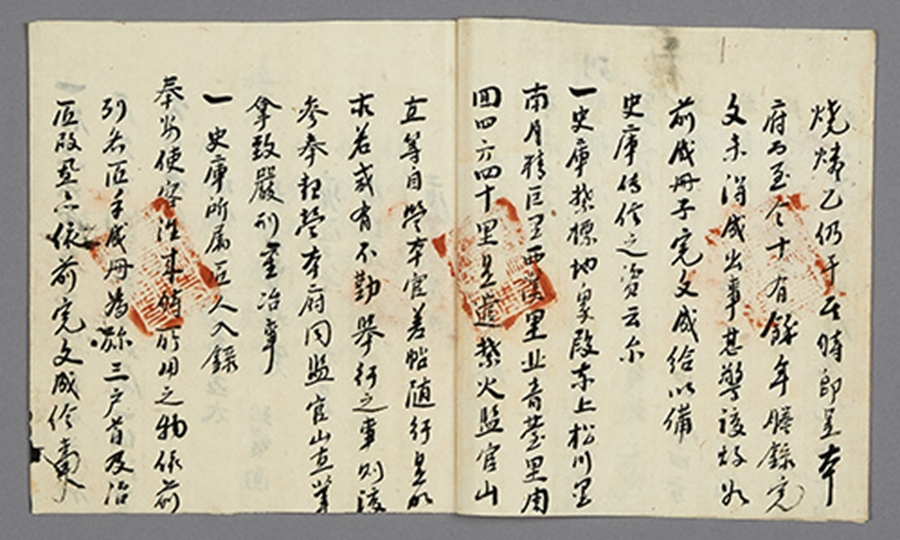 燒燼乙仍于其時卽呈本
府而至今十有餘年謄錄完
文未得成出事甚驚該故如
前成冊子完文成給以備
史庫傳信之資云尔
一史庫禁標地界段東上松川里
南月精巨里西漢里北音臺里周
回四方四十里是遣禁火監官山
直等自營本官差帖随行是如
求若或有不勤擧行之事則該
参奉報營本府同監官山直等
拿致嚴刑重治事
一史庫所属匠人入錄
奉安使客往來時所用之物依前
列名匠手成冊為 三戶首及冶
匠段置亦依前完文成給